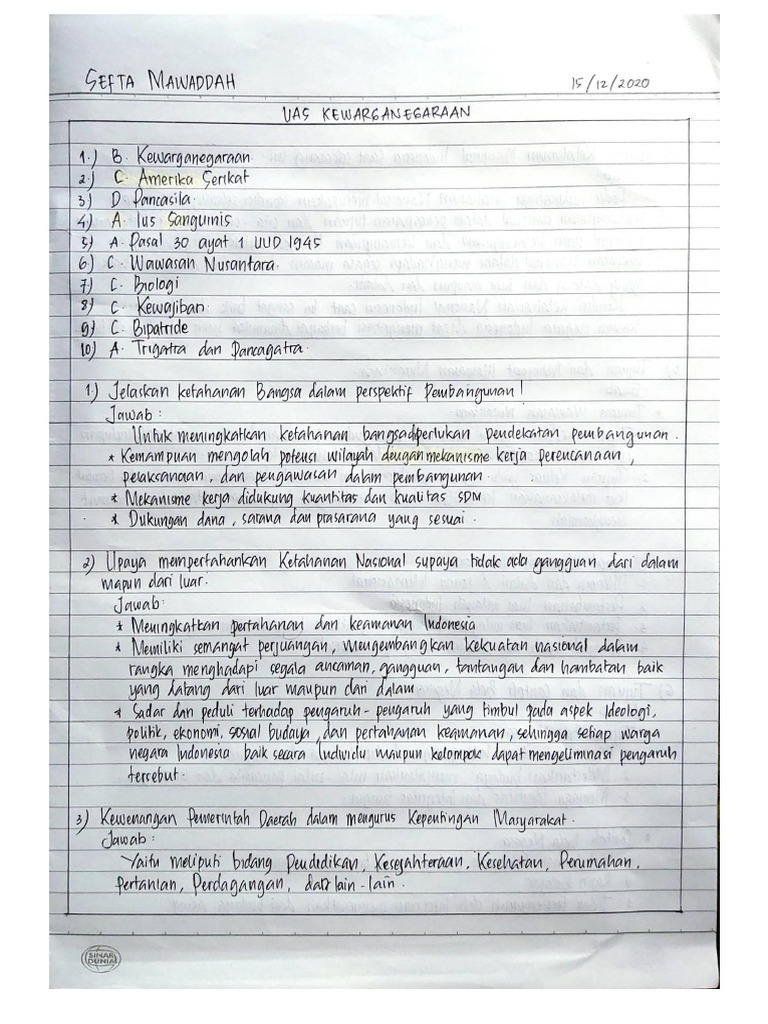 SEFTA MAWADDAH
15/12/2020
UAS KEWARGANEGARAAN
1.) B. Kewarganegaraan.
2.) C. Amerika Serikat
3) D. Pancasila.
4) A. Ius Sanguinis
5) A. Pasal 30 ayat 1 UUD 1945
6) C. Wawasan Nusantara.
7) C. Biologi
8) C. Kewajiban.
9) C. Bipatride
10) A. Trigatra dan Pancagatra.
1.) Jelaskan ketahanan Bangsa dalam perspektif Pembangunan!
Jawab:
Untuk meningkatkan ketahanan bangsadperlukan pendekatan pembangunan.
* Kemampuan mengolah potensi wilayah dengan mekanisme kerja perencanaan,
pelaksanaan, dan pengawasan dalam pembangunan.
* Mekanisme kerja didukung kuantitas dan kualitas SDM
* Dukungan dana, sarana dan prasarana yang sesuai.
2) Upaya mempertahankan Ketahanan Nasional supaya tidak ada gangguan dari dalam
mapun dari luar.
Jawab:
* Meningkatkan pertahanan dan keamanan Indonesia
* Memiliki semangat perjuangan, mengembangkan kekuatan nasional dalam
rangka menghadapi segala ancaman, gangguan, tantangan dan hambatan baik
yang datang dari luar maupun dari dalam.
* Sadar dan peduli terhadap pengaruh-pengaruh yang timbul pada aspek Ideologi,
politik, ekonomi, sosial budaya, dan pertahanan keamanan, sehingga setiap warga
negara Indonesia baik secara Individu maupun kelompok dapat mengeliminasi pengaruh
tersebut.
3) Kewenangan Pemerintah Daerah dalam mengurus Kepentingan Masyarakat.
Jawab:
Yaitu meliputi bidang Pendidikan, Kesejahteraan, Kesehatan, Perumahan,
Pertanian, Perdagangan, dan lain-lain.
SINAR
DUNIA